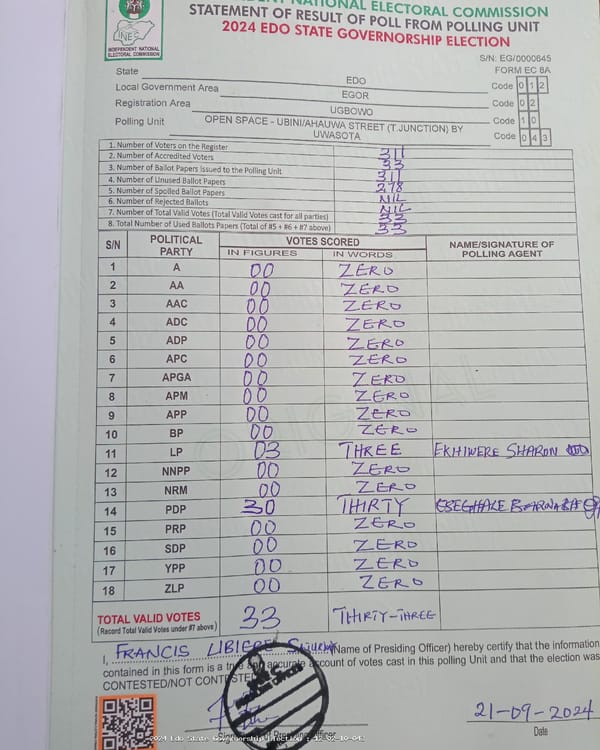 INEC
INDEPENDENT NATIONAL
ELECTORAL COMMISSION
NATIONAL ELECTORAL COMMISSION
STATEMENT OF RESULT OF POLL FROM POLLING UNIT
2024 EDO STATE GOVERNORSHIP ELECTION
S/N: EG/0000845
FORM EC 8A
State EDO Code 0 1 2
Local Government Area EGOR Code 0 2
Registration Area UGBOWO Code 1 0
Polling Unit OPEN SPACE - UBINI/AHAUWA STREET (T.JUNCTION) BY UWASOTA Code 0 4 3
1. Number of Voters on the Register 311
2. Number of Accredited Voters 33
3. Number of Ballot Papers Issued to the Polling Unit 311
4. Number of Unused Ballot Papers 278
5. Number of Spoiled Ballot Papers NIL
6. Number of Rejected Ballots NIL
7. Number of Total Valid Votes (Total Valid Votes cast for all parties) 33
8. Total Number of Used Ballots Papers (Total of #5 + #6 + #7 above) 33
S/N POLITICAL PARTY VOTES SCORED NAME/SIGNATURE OF POLLING AGENT
IN FIGURES IN WORDS
1 A 00 ZERO
2 AA 00 ZERO
3 AAC 00 ZERO
4 ADC 00 ZERO
5 ADP 00 ZERO
6 APC 00 ZERO
7 APGA 00 ZERO
8 APM 00 ZERO
9 APP 00 ZERO
10 BP 00 ZERO
11 LP 03 THREE EKHIWERE SHARON
12 NNPP 00 ZERO
13 NRM 00 ZERO
14 PDP 30 THIRTY
15 PRP 00 ZERO
16 SDP 00 ZERO
17 YPP 00 ZERO
18 ZLP 00 ZERO
TOTAL VALID VOTES 33 THIRTY-THREE
(Record Total Valid Votes under #7 above)
I, FRANCIS (Name of Presiding Officer) hereby certify that the information
contained in this form is a true and accurate account of votes cast in this polling Unit and that the election was
CONTESTED/NOT CONTESTED
21-09-2024
Date
2024 Edo State Governorship Election : 12-02-10-043